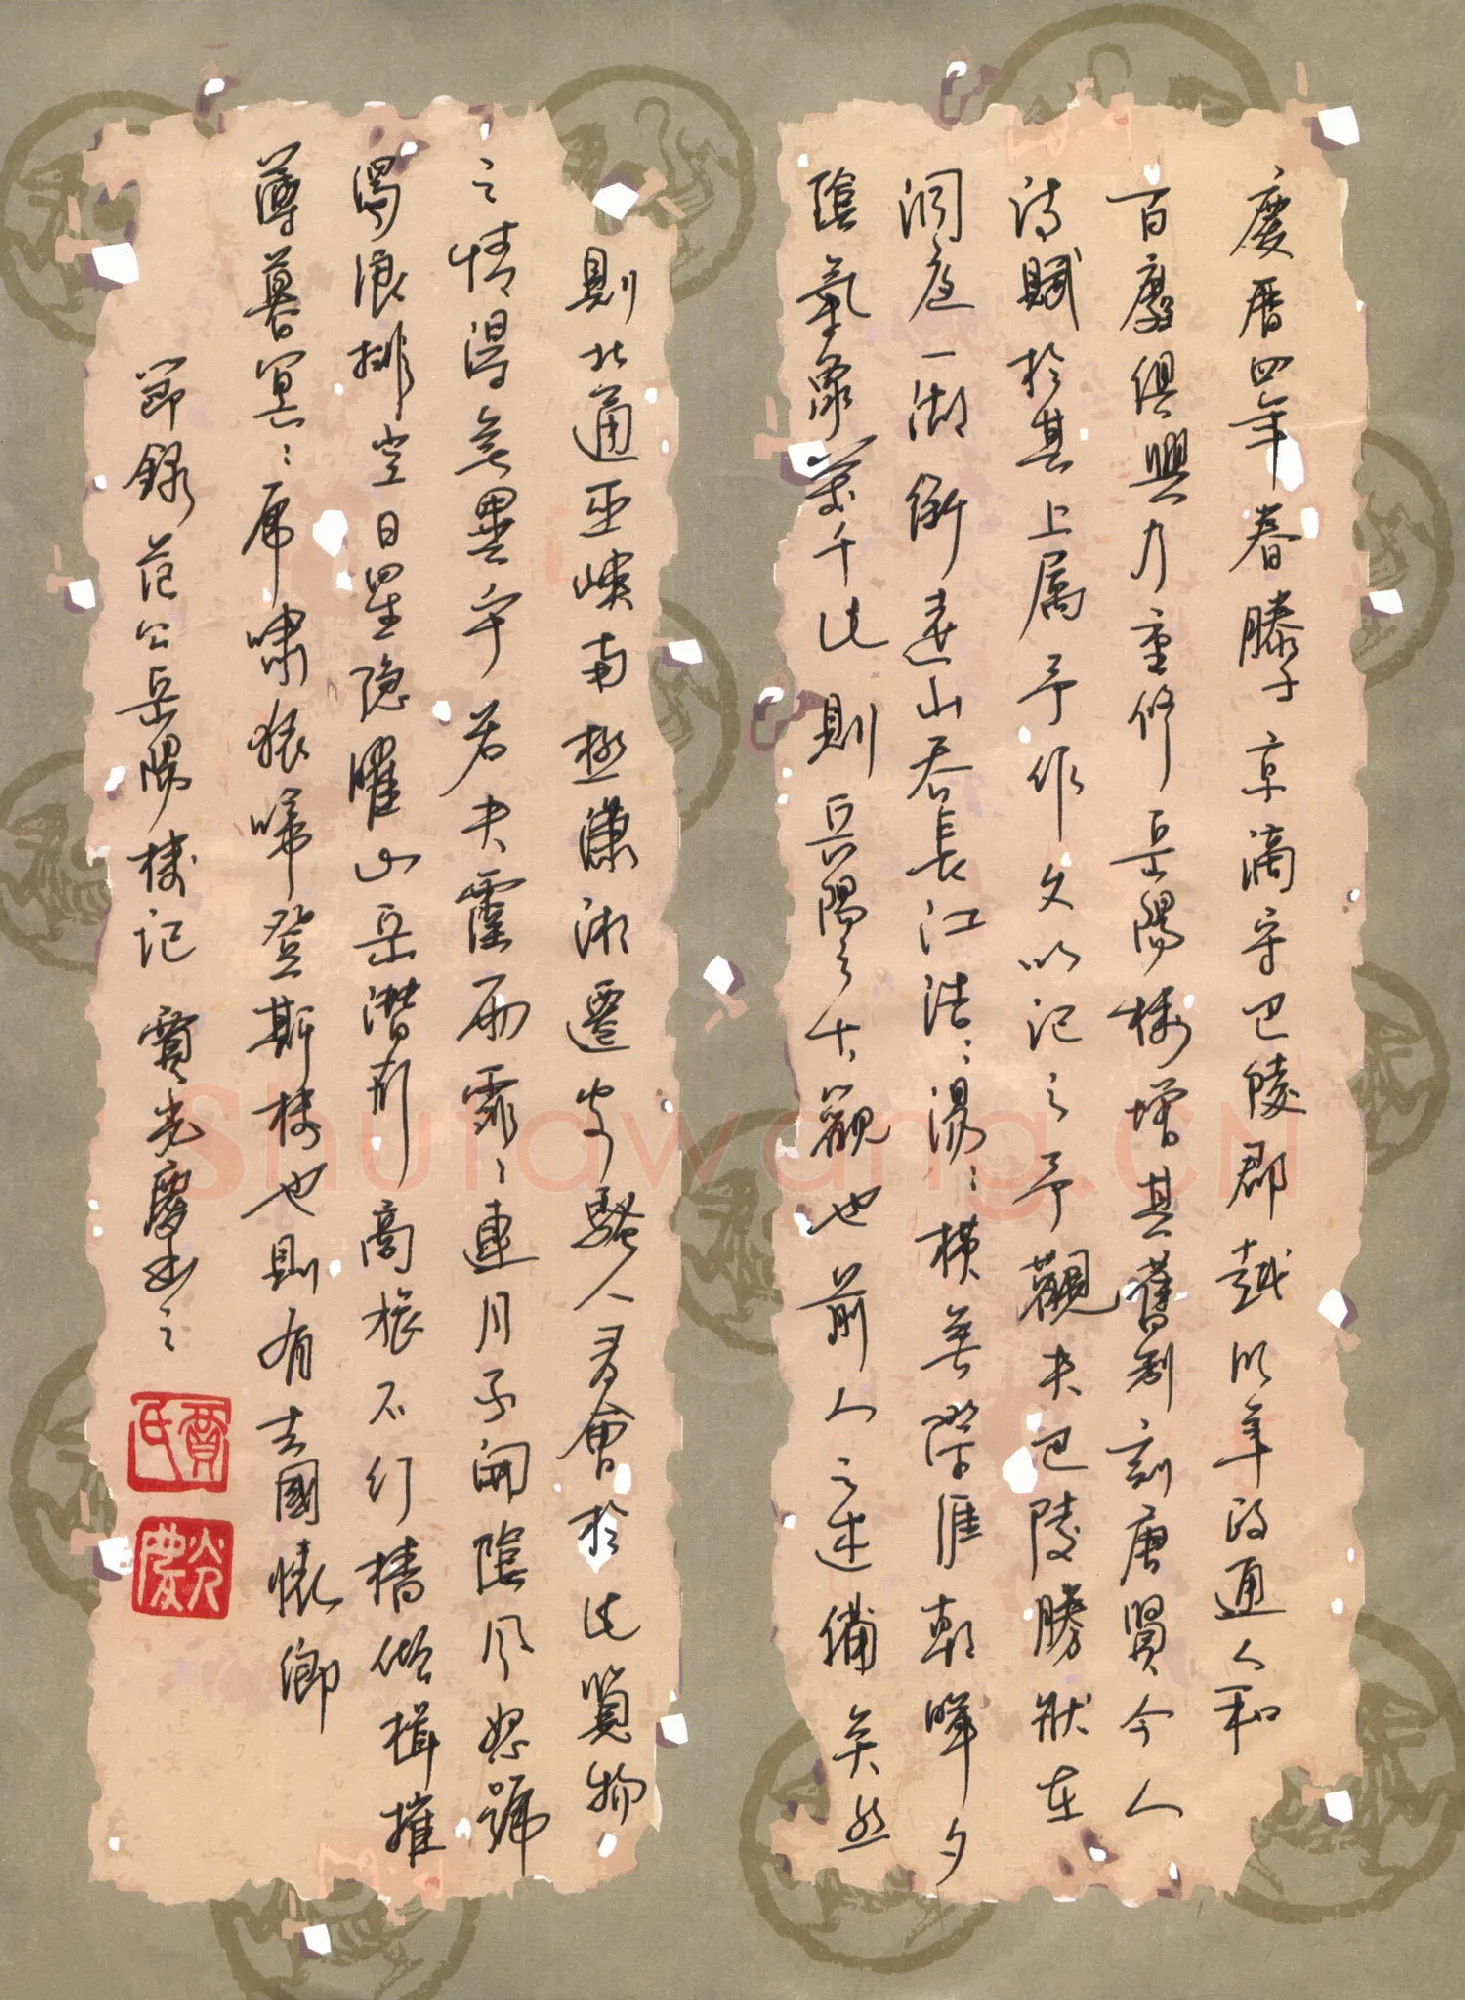 慶曆四年春滕子京滴守巴陵郡越明年政通人和
百廢俱興乃重修岳陽樓增其舊制刻唐賢今人
詩賦於其上属予作文以记之予觀夫巴陵勝狀在
洞庭一湖銜遠山吞長江浩〻湯〻橫無際涯朝暉夕
陰氣象萬千此則岳陽之大觀也前人之述備矣然
則北通巫峽南極瀟湘遷客騷人多會於此覽物
之情得無異乎若夫霪雨霏〻連月不開陰风怒號
濁浪排空日星隐曜山岳潜形商旅不行檣傾楫摧
薄暮冥〻虎嘯猿啼登斯楼也則有去國懷鄉
節錄范公岳陽楼记 賈光慶书之
賈氏
光慶
Shufawang.CN